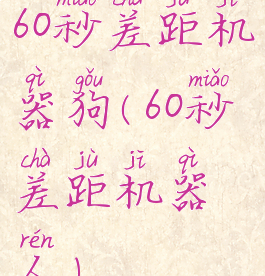 miǎo chā jù jī
60秒差距机
qì gǒu miǎo
器狗(60秒
chà jù jī qì
差距机器
rén
人)